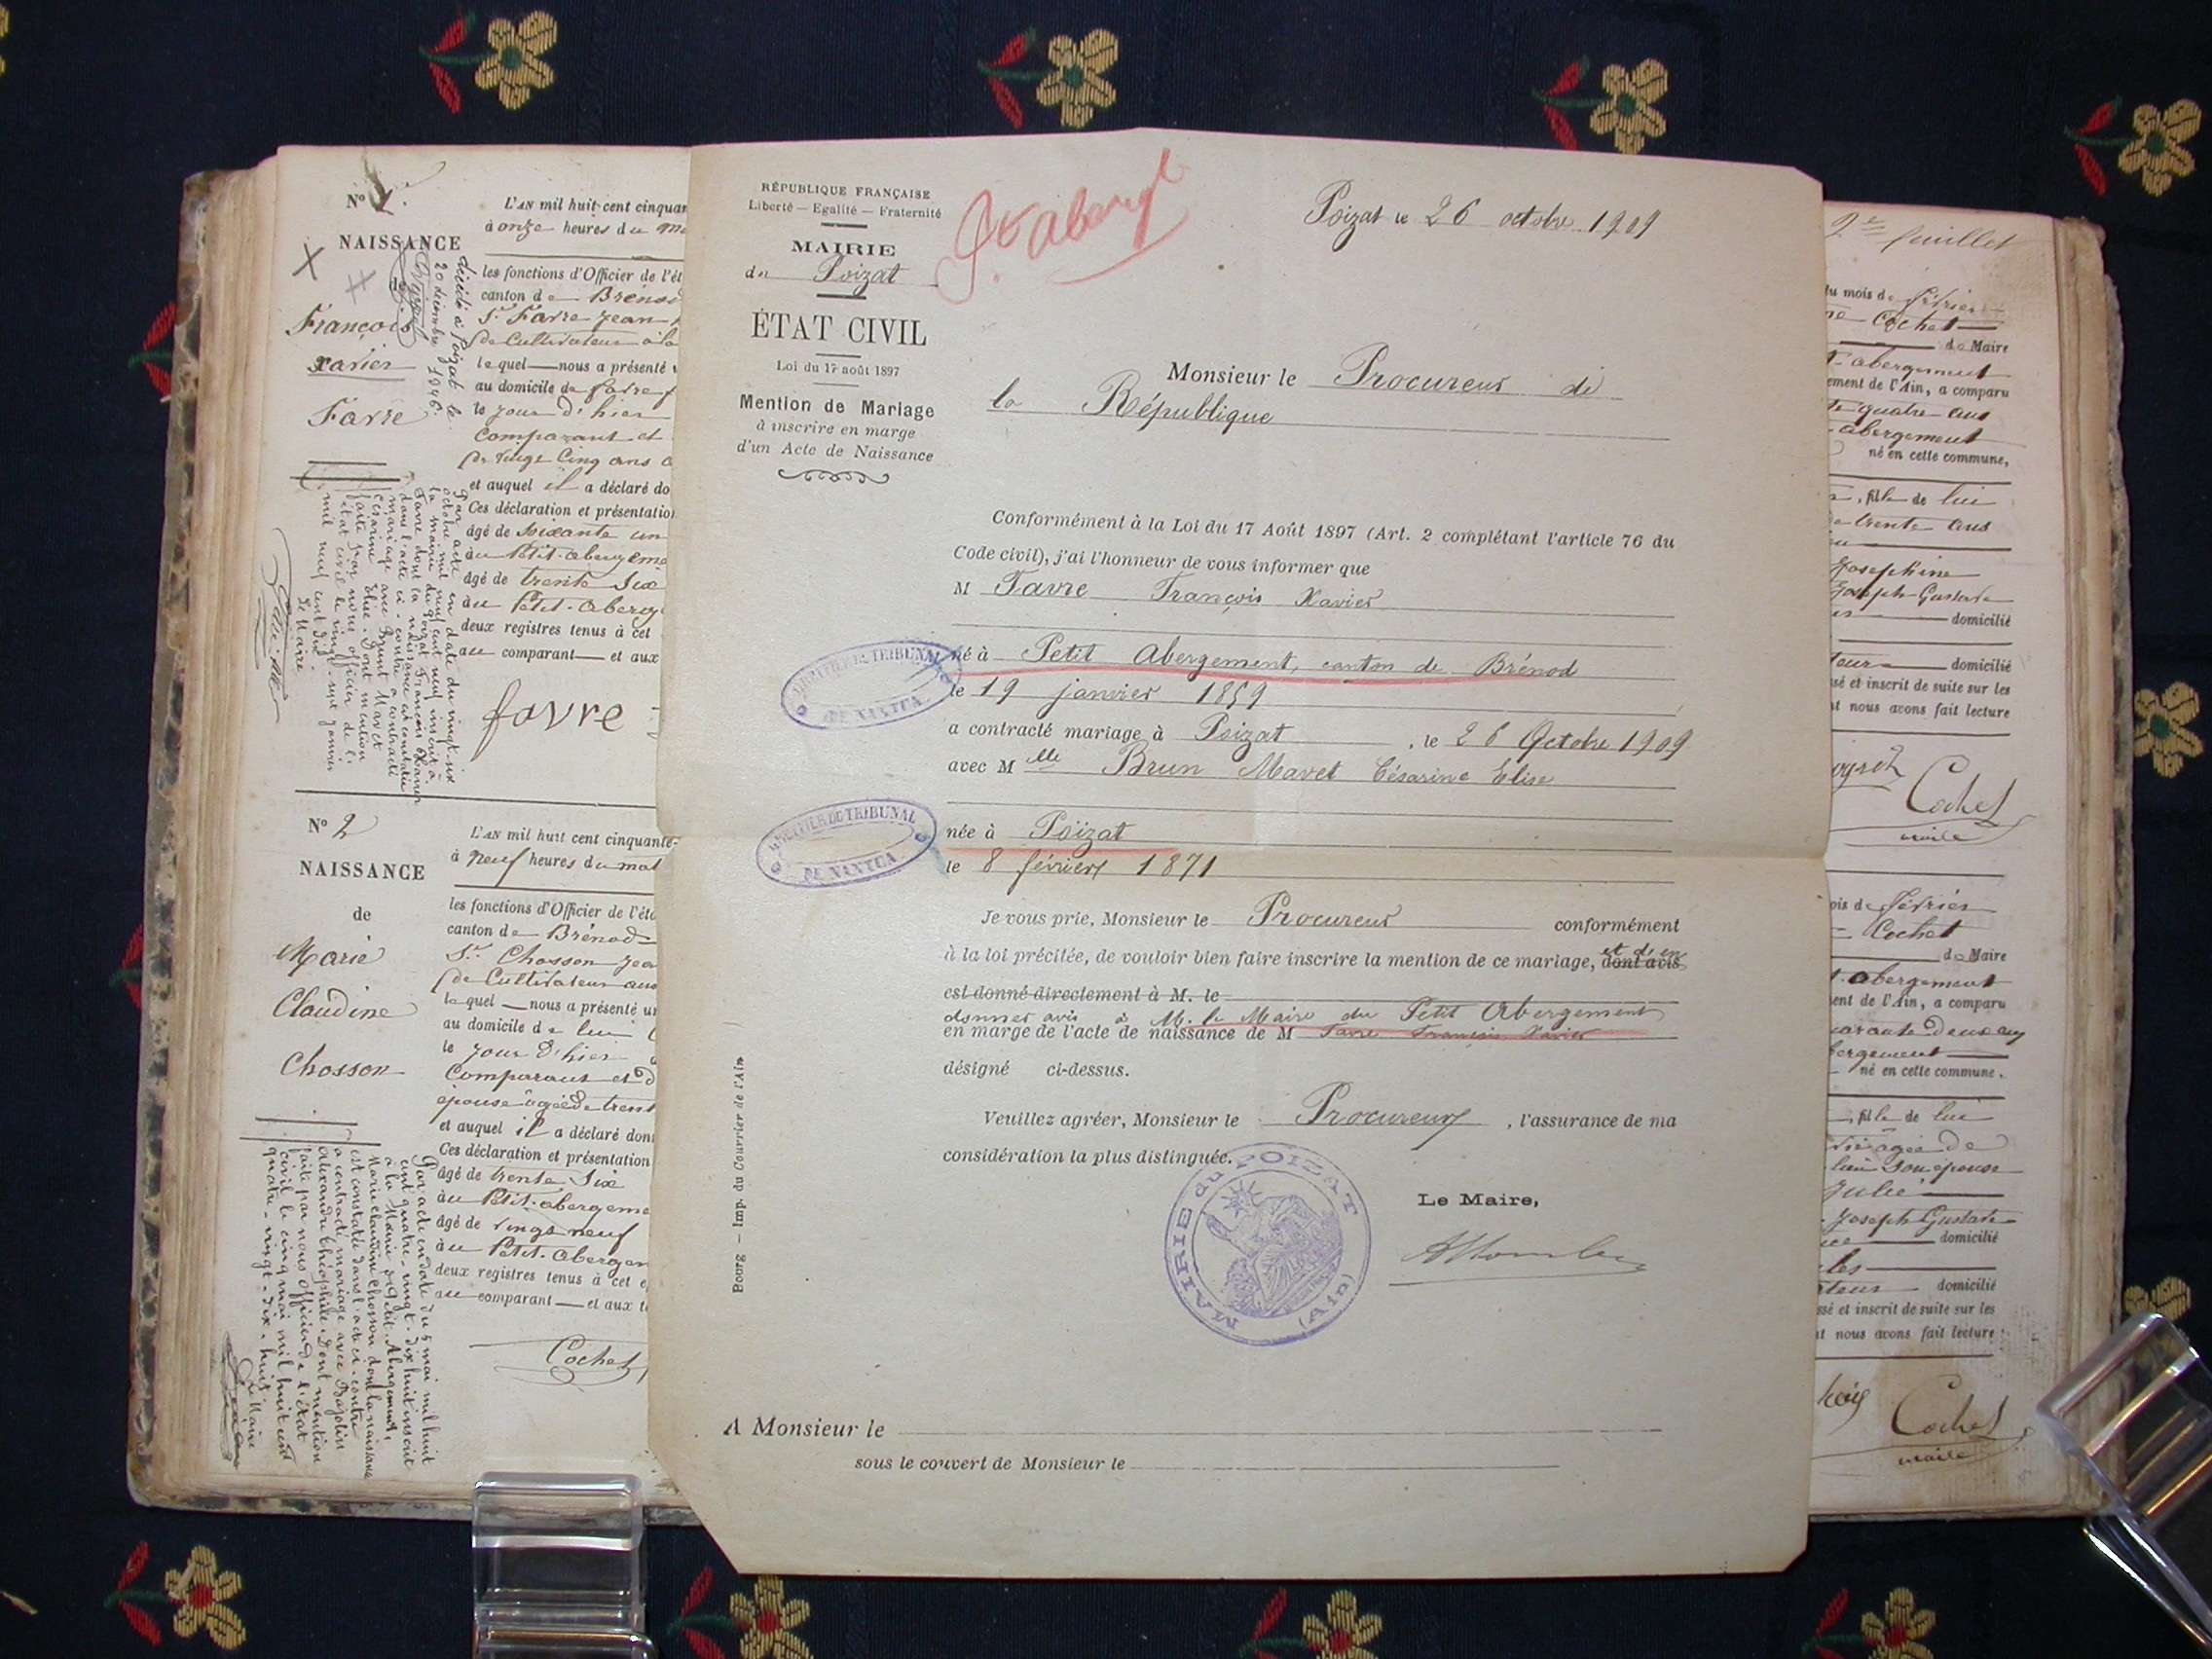 N° 1.
NAISSANCE
de
François
xavier
Favre
décédé à Poizat le
20 décembre 1946.
L'AN mil huit cent cinquan
à onze heures du ma
les fonctions d'Officier de l'ét
canton de Brénod
Sr. Favre Jean
de Cultivateur à la
lequel nous a présenté
au domicile de favre
le jour d'hier
Comparant et
de vingt Cinq ans
et auquel il a déclaré do
Ces déclaration et présentation
âgé de Soixante un
au Petit-abergeme
âgé de trente Six
au Petit-aberg
deux registres tenus à cet
au comparant et aux
favre
Par acte en date du vingt-six
octobre mil neuf cent neuf inscrit à
la mairie du Poizat François Xavier
Favre dont la naissance est constatée
dans l'acte ci-contre a contracté
mariage avec Brun Mavet
Césarine Elise. Dont mention
faite par nous officier de l'
état civil le vingt-sept janvier
mil neuf cent dix.
Le Maire
N° 2
NAISSANCE
de
Marie
Claudine
Chosson
L'AN mil huit cent cinquante-
à neuf heures du mat
les fonctions d'Officier de l'éta
canton de Brénod
Sr. Chosson Jea
de Cultivateur
lequel nous a présenté un
au domicile de lui
le jour d'hier
Comparant et d
épouse âgée de trent
et auquel il a déclaré don
Ces déclaration et présentation
âgé de trente Six
au Petit-abergeme
âgé de vingt neuf
au Petit-abergem
deux registres tenus à cet e
au comparant et aux t
Cochet
Par acte en date du 5 mai mil huit
cent quatre-vingt-dix huit inscrit
à la Mairie du Petit-Abergement,
Marie Claudine Chosson dont la naissance
est constatée dans l'acte ci-contre
a contracté mariage avec
alexandre théophile. Dont mention
faite par nous officier de l'état
civil le cinq mai mil huit cent
quatre-vingt-dix-huit.
Le Maire
RÉPUBLIQUE FRANÇAISE
Liberté — Egalité — Fraternité
MAIRIE
du Poizat
ÉTAT CIVIL
Loi du 17 août 1897
Mention de Mariage
à inscrire en marge
d'un Acte de Naissance
Pt aberg
Poizat le 26 octobre 1909
Monsieur le Procureur de
la République
Conformément à la Loi du 17 Août 1897 (Art. 2 complétant l'article 76 du
Code civil), j'ai l'honneur de vous informer que
M Favre François Xavier
né à Petit Abergement, canton de Brénod
le 19 janvier 1859
a contracté mariage à Poizat, le 26 Octobre 1909
avec Melle Brun Mavet Césarine Elise
née à Poïzat
le 8 février 1871
GREFFIER DU TRIBUNAL
DE NANTUA
GREFFIER DU TRIBUNAL
DE NANTUA
Je vous prie, Monsieur le Procureur conformément
à la loi précitée, de vouloir bien faire inscrire la mention de ce mariage, dont avis et d'en
est donné directement à M. le
donner avis à M. le Maire du Petit Abergement
en marge de l'acte de naissance de M Favre François Xavier
désigné ci-dessus.
Veuillez agréer, Monsieur le Procureur, l'assurance de ma
considération la plus distinguée.
Le Maire,
MAIRIE du POIZAT
(Ain)
A Monsieur le
sous le couvert de Monsieur le
Bourg — Imp. du Courrier de l'Ain
2e feuillet
du mois de février
Cochet
de Maire
t-abergement
ement de l'Ain, a comparu
te quatre ans
abergement
né en cette commune,
, fille de lui
trente ans
Josephine
Joseph Gustave
domicilié
teur domicilié
sé et inscrit de suite sur les
nt nous avons fait lecture
Cochet
maire
ois de février
Cochet
de Maire
t-abergement
ent de l'Ain, a comparu
arante deux ans
bergement
né en cette commune.
, fille de lui
âgée de
lui son épouse
Julie
Joseph Gustave
domicilié
teur domicilié
ssé et inscrit de suite sur les
nt nous avons fait lecture
Cochet
maire